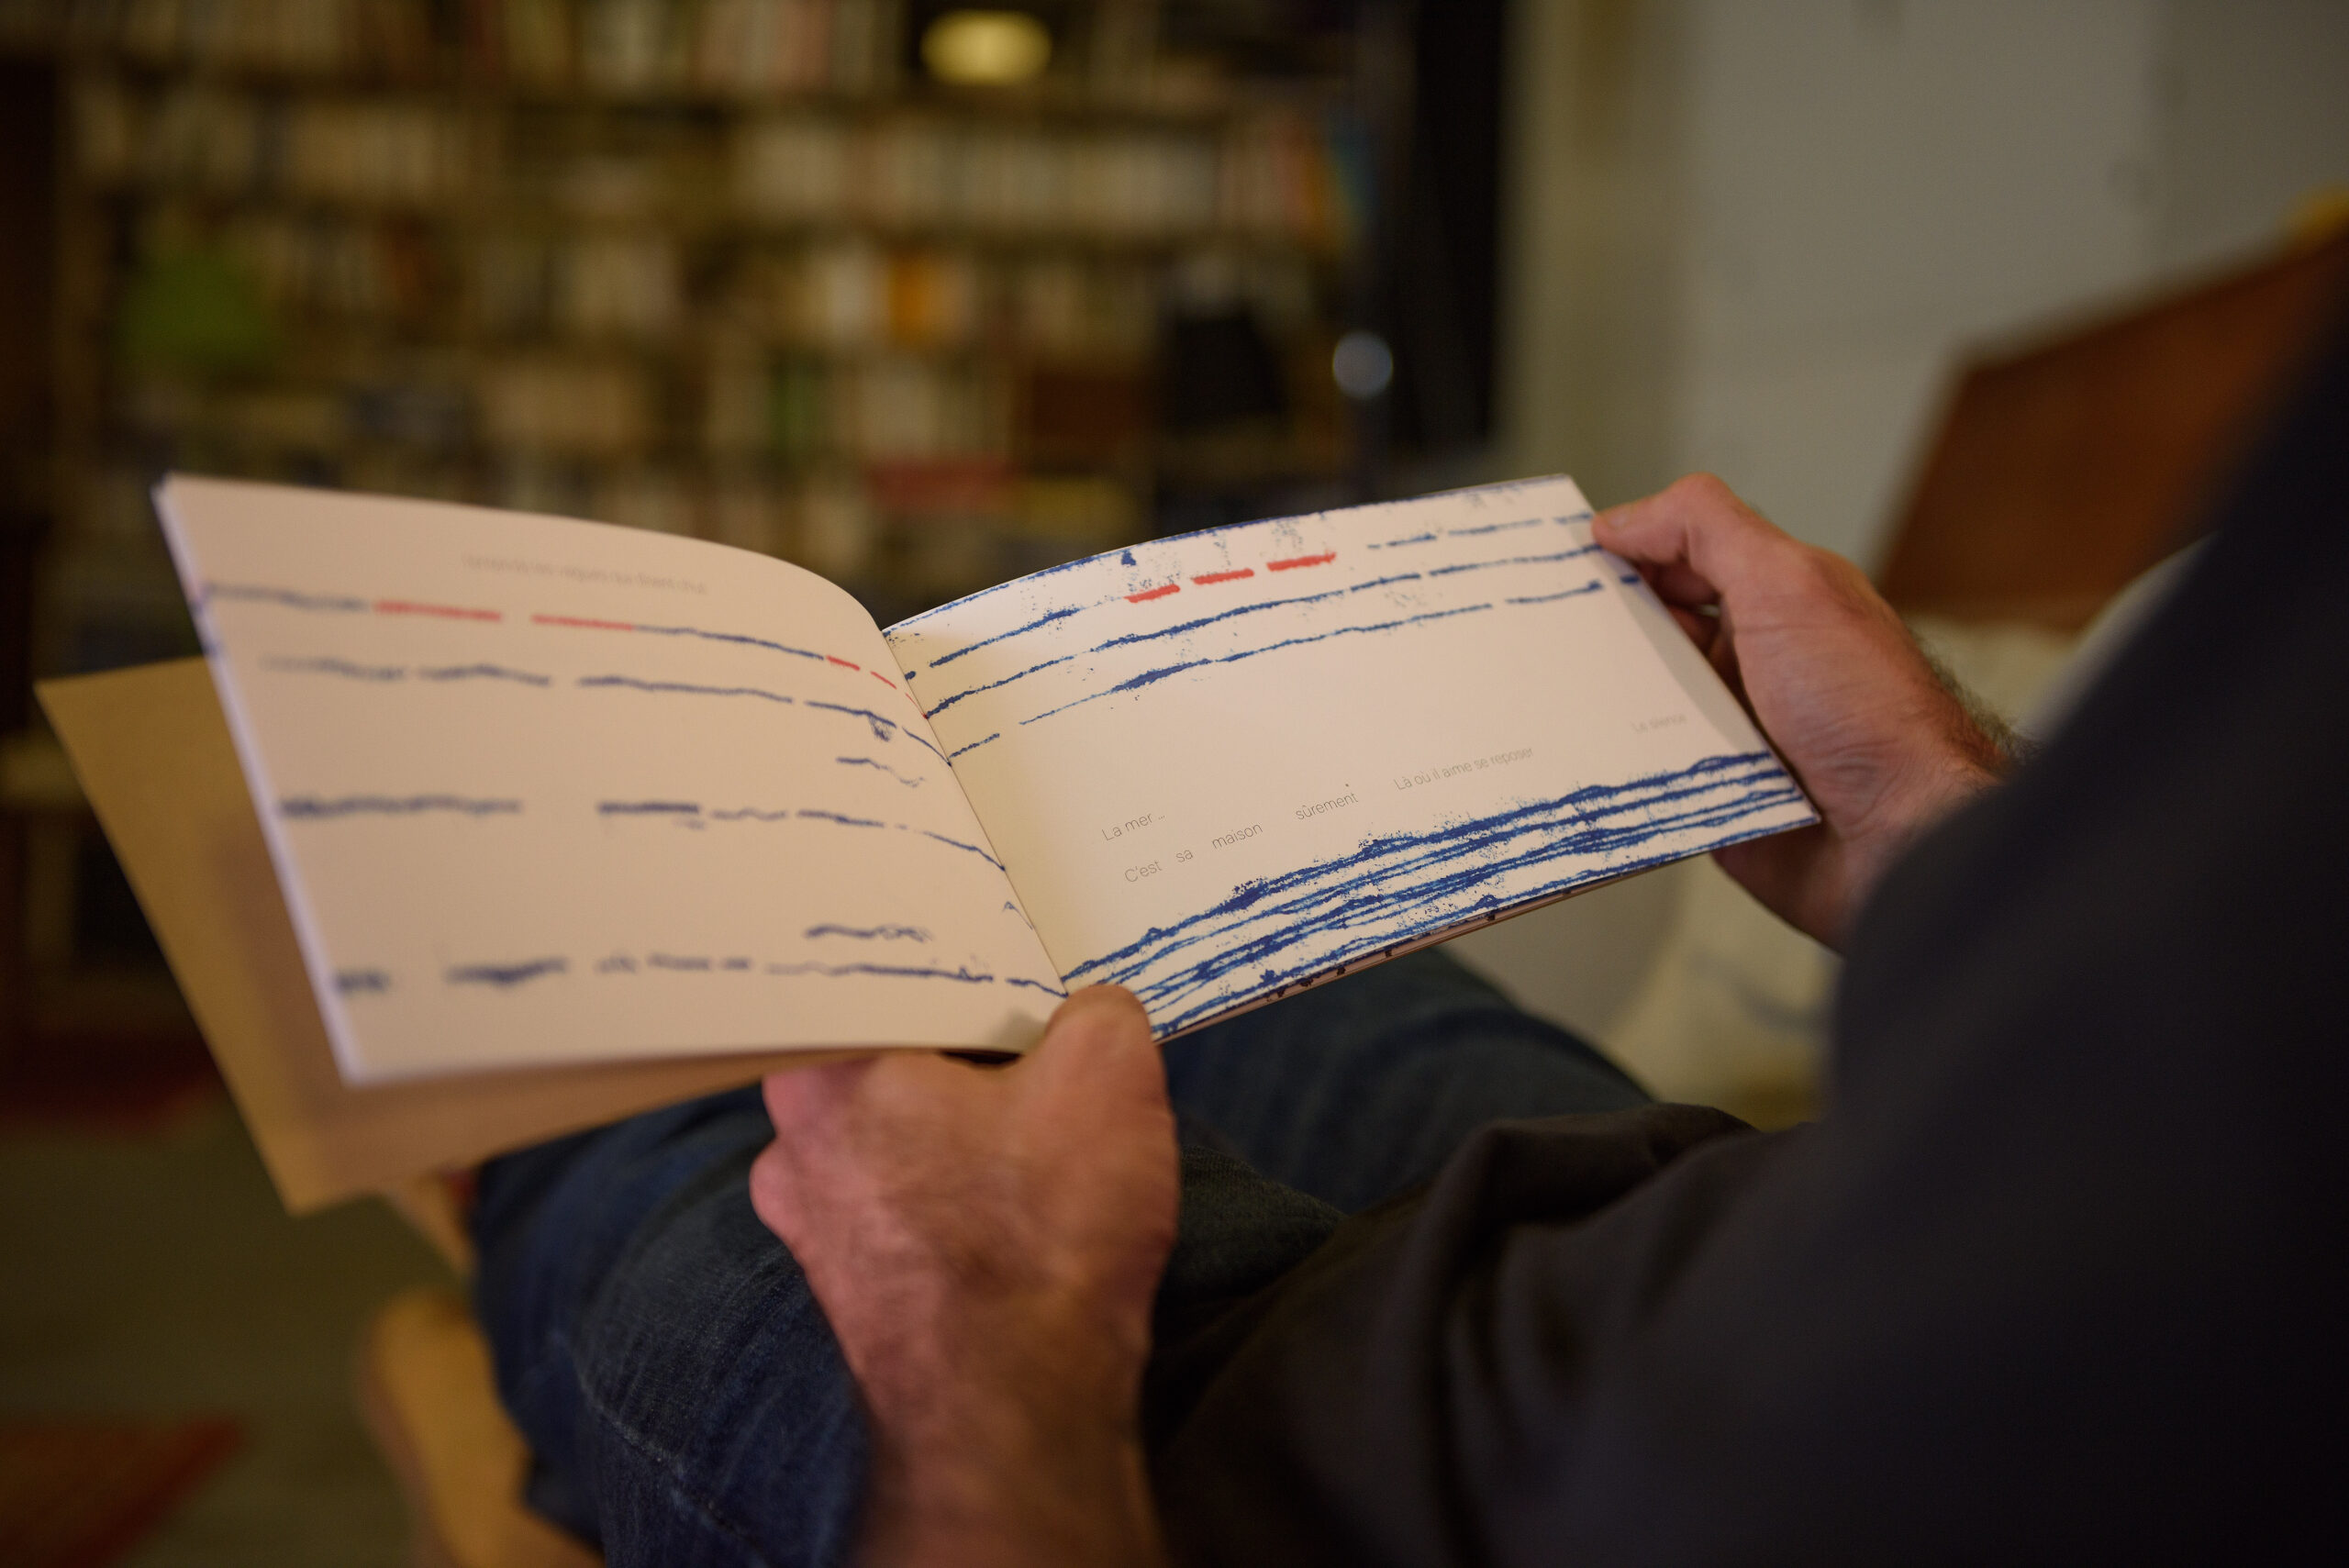 La mer ..
C'est sa maison sûrement Là où il aime se reposer
Le silence